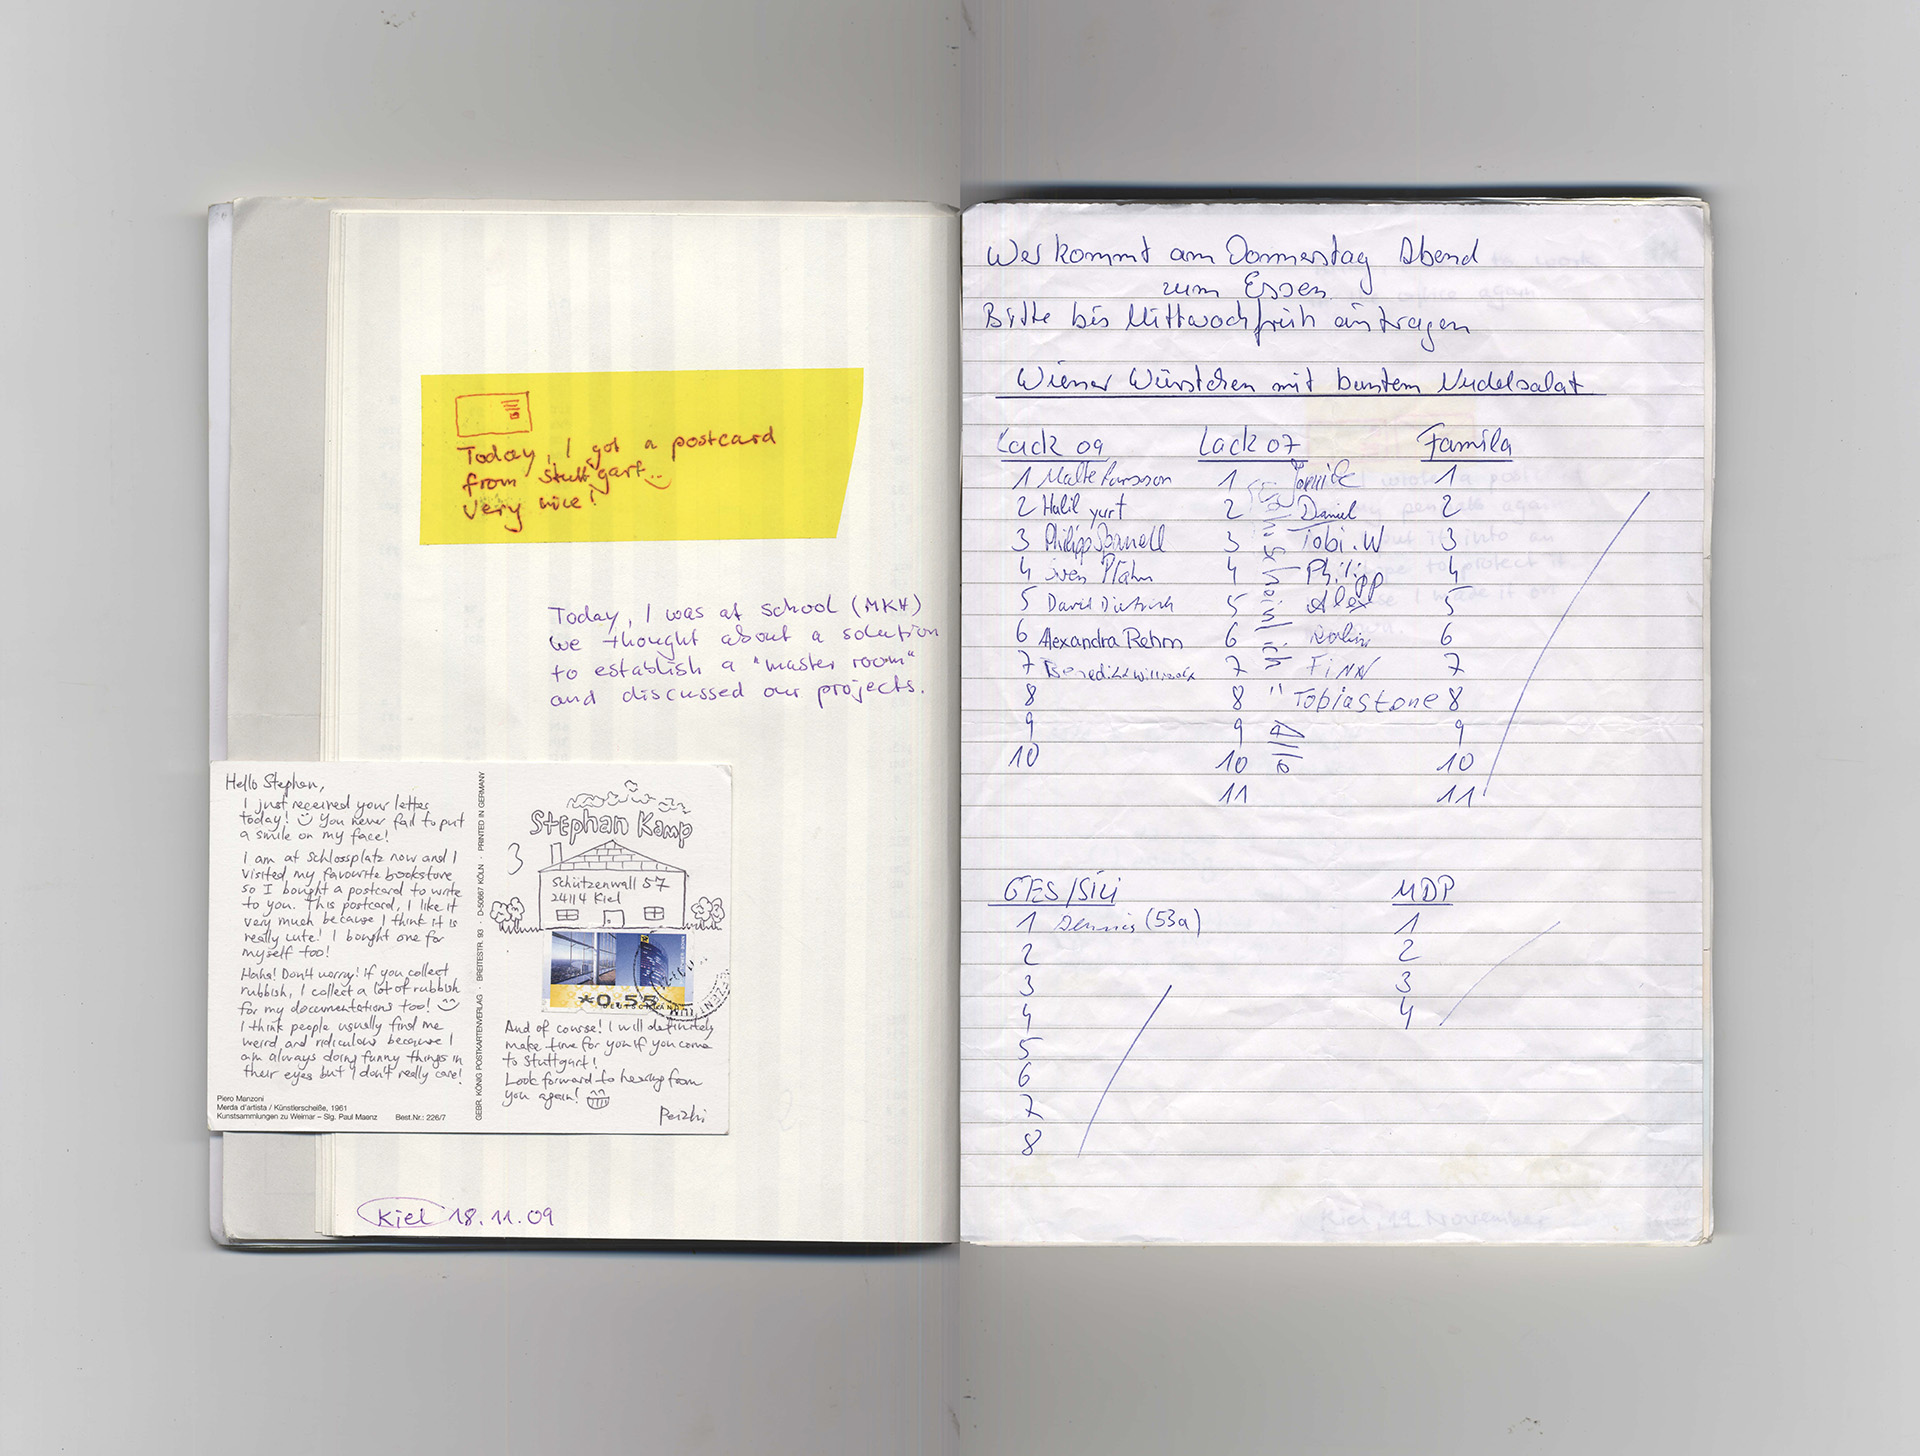 Today, I got a postcard
from Stuttgart
very nice!
Today, I was at school (MKH)
we thought about a solution
to establish a "master room"
and discussed our projects.
Hello Stephan,
I just received your letter
today! You never fail to put
a smile on my face!
I am at Schlossplatz now and I
visited my favourite bookstore
so I bought a postcard to write
to you. This postcard, I like it
very much because I think it is
really cute! I bought one for
myself too!
Haha! Don't worry! If you collect
rubbish, I collect a lot of rubbish
for my documentations too!
I think people usually find me
weird and ridiculous because I
am always doing funny things in
their eyes but I don't really care!
Piero Manzoni
Merda d'artista / Künstlerscheiße, 1961
Kunstsammlungen zu Weimar – Slg. Paul Maenz Best.Nr.: 226/7
GEBR. KÖNIG POSTKARTENVERLAG · BREITESTR. 93 · D-50667 KÖLN · PRINTED IN GERMANY
Stephan Kamp
3
Schützenwall 57
24114 Kiel
*0,55
And of course! I will definitely
make time for you if you come
to Stuttgart!
Look forward to hearing from
you again!
Peizhi
Kiel 18.11.09
Wer kommt am Donnerstag Abend
zum Essen
Bitte bis Mittwoch früh eintragen
Wiener Würstchen mit buntem Nudelsalat
Lack 09 Lack 07 Famila
1 Malte 1 1
2 Halil yurt 2 Daniel 2
3 Philipp 3 Tobi.W 3
4 Sven 4 Philipp 4
5 David Dietrich 5 Alex 5
6 Alexandra Rehm 6 6
7 7 FiNN 7
8 8 " Tobiastone 8
9 9 9
10 10 10
11 11
GES/SiLi MDP
1 Dennis (53a) 1
2 2
3 3
4 4
5
6
7
8
Kiel, 19. November